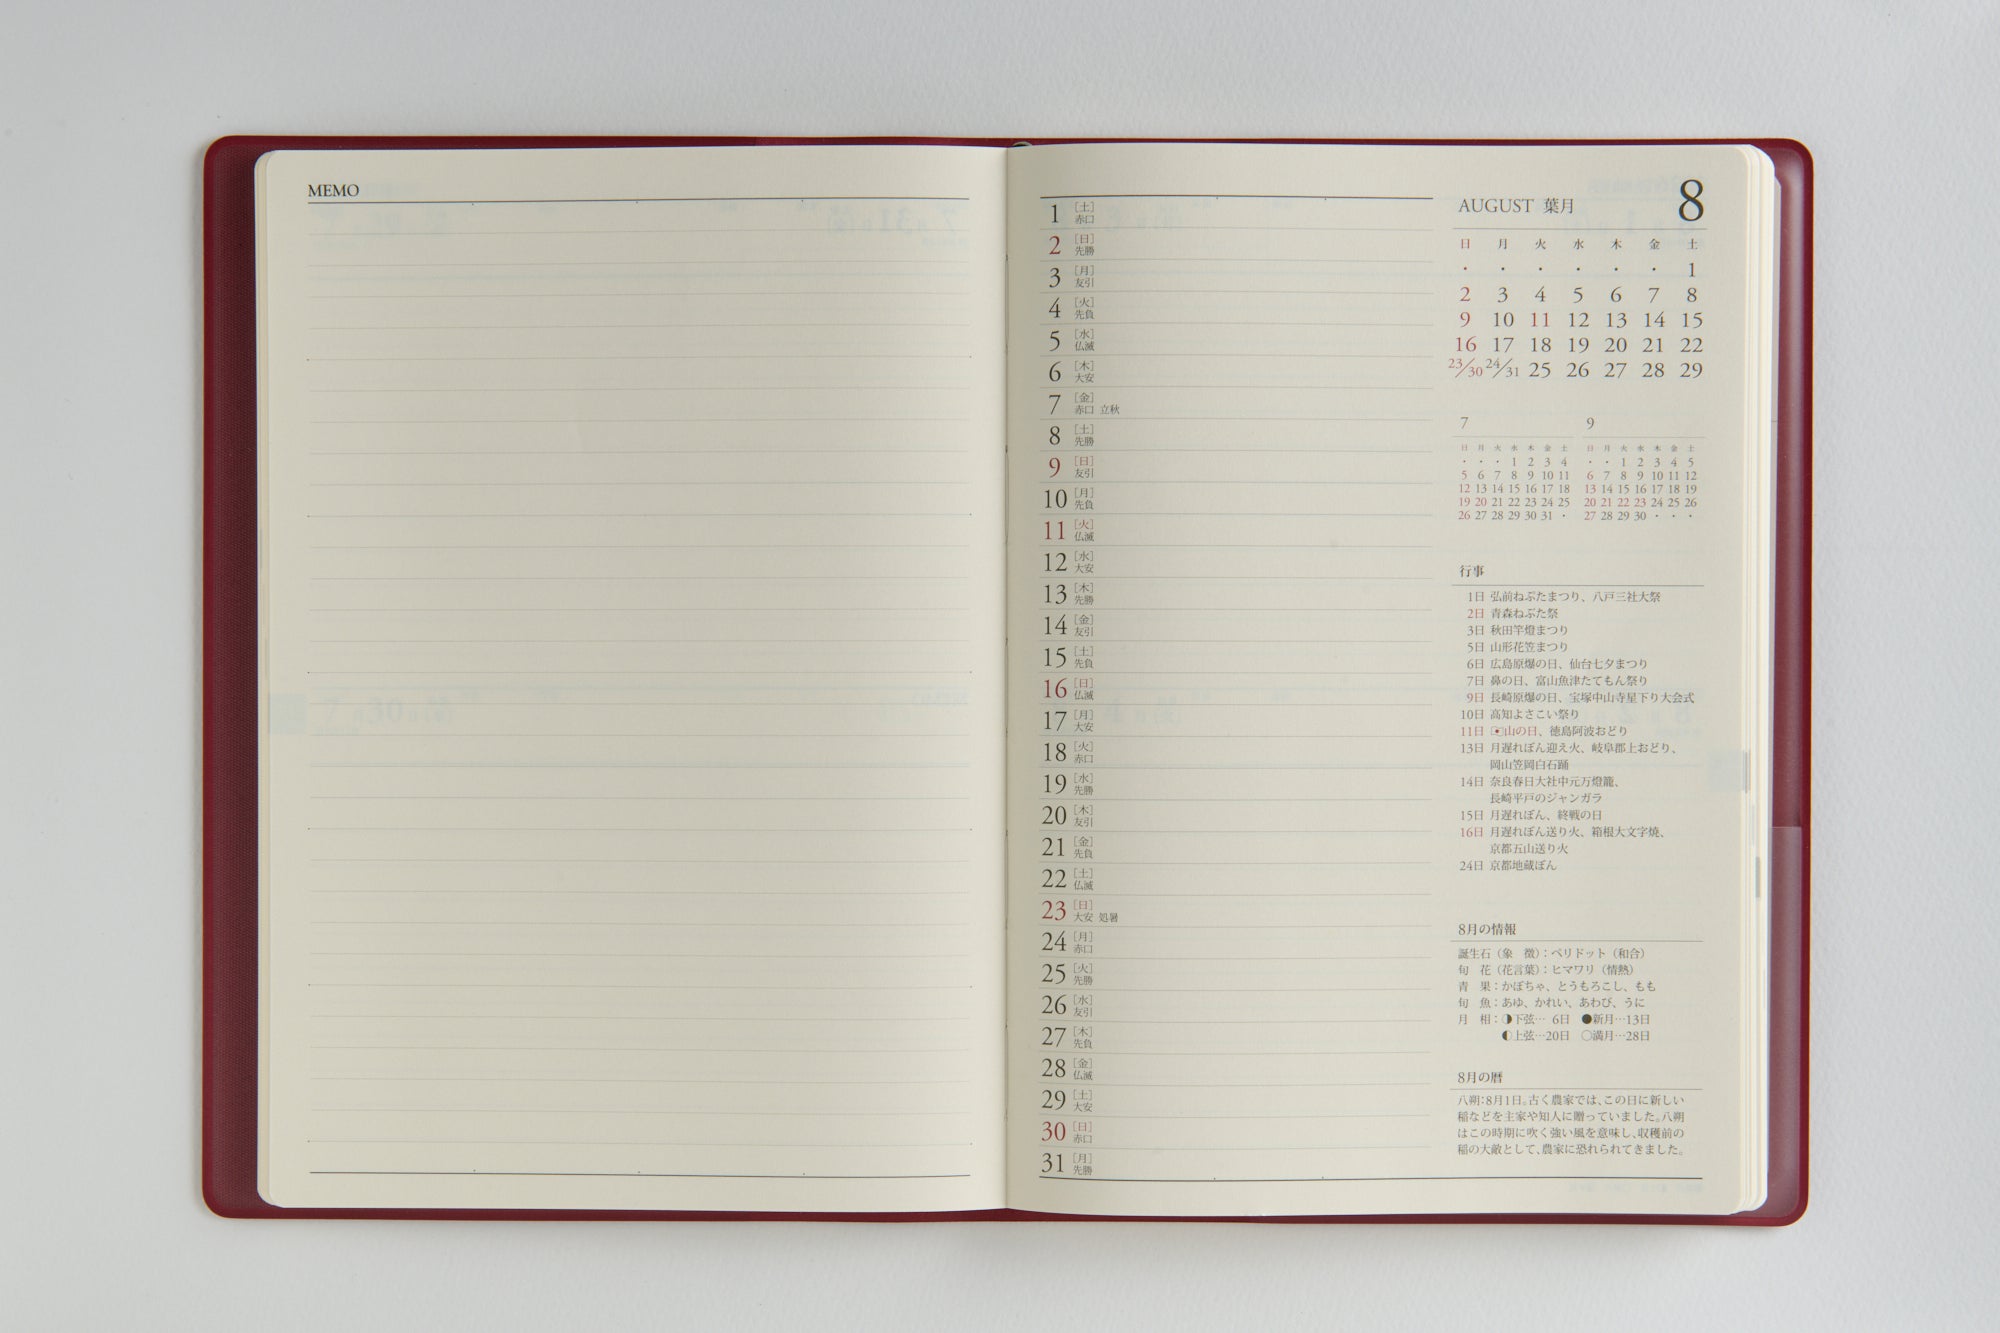 MEMO
1 [土] 赤口
2 [日] 先勝
3 [月] 友引
4 [火] 先負
5 [水] 仏滅
6 [木] 大安
7 [金] 赤口 立秋
8 [土] 先勝
9 [日] 友引
10 [月] 先負
11 [火] 仏滅
12 [水] 大安
13 [木] 先勝
14 [金] 友引
15 [土] 先負
16 [日] 仏滅
17 [月] 大安
18 [火] 赤口
19 [水] 先勝
20 [木] 友引
21 [金] 先負
22 [土] 仏滅
23 [日] 大安 処暑
24 [月] 赤口
25 [火] 先勝
26 [水] 友引
27 [木] 先負
28 [金] 仏滅
29 [土] 大安
30 [日] 赤口
31 [月] 先勝
AUGUST 葉月 8
日 月 火 水 木 金 土
・ ・ ・ ・ ・ ・ 1
2 3 4 5 6 7 8
9 10 11 12 13 14 15
16 17 18 19 20 21 22
23/30 24/31 25 26 27 28 29
7
日 月 火 水 木 金 土
・ ・ ・ 1 2 3 4
5 6 7 8 9 10 11
12 13 14 15 16 17 18
19 20 21 22 23 24 25
26 27 28 29 30 31 ・
9
日 月 火 水 木 金 土
・ ・ 1 2 3 4 5
6 7 8 9 10 11 12
13 14 15 16 17 18 19
20 21 22 23 24 25 26
27 28 29 30 ・ ・ ・
行事
1日 弘前ねぷたまつり、八戸三社大祭
2日 青森ねぶた祭
3日 秋田竿燈まつり
5日 山形花笠まつり
6日 広島原爆の日、仙台七夕まつり
7日 鼻の日、富山魚津たてもん祭り
9日 長崎原爆の日、宝塚中山寺星下り大会式
10日 高知よさこい祭り
11日 山の日、徳島阿波おどり
13日 月遅れぼん迎え火、岐阜郡上おどり、
岡山笠岡白石踊
14日 奈良春日大社中元万燈籠、
長崎平戸のジャンガラ
15日 月遅れぼん、終戦の日
16日 月遅れぼん送り火、箱根大文字焼、
京都五山送り火
24日 京都地蔵ぼん
8月の情報
誕生石（象　徴）：ペリドット（和合）
旬　花（花言葉）：ヒマワリ（情熱）
青　果：かぼちゃ、とうもろこし、もも
旬　魚：あゆ、かれい、あわび、うに
月　相：◑下弦… 6日 ●新月…13日
◐上弦…20日 ○満月…28日
8月の暦
八朔：8月1日。古く農家では、この日に新しい
稲などを主家や知人に贈っていました。八朔
はこの時期に吹く強い風を意味し、収穫前の
稲の大敵として、農家に恐れられてきました。